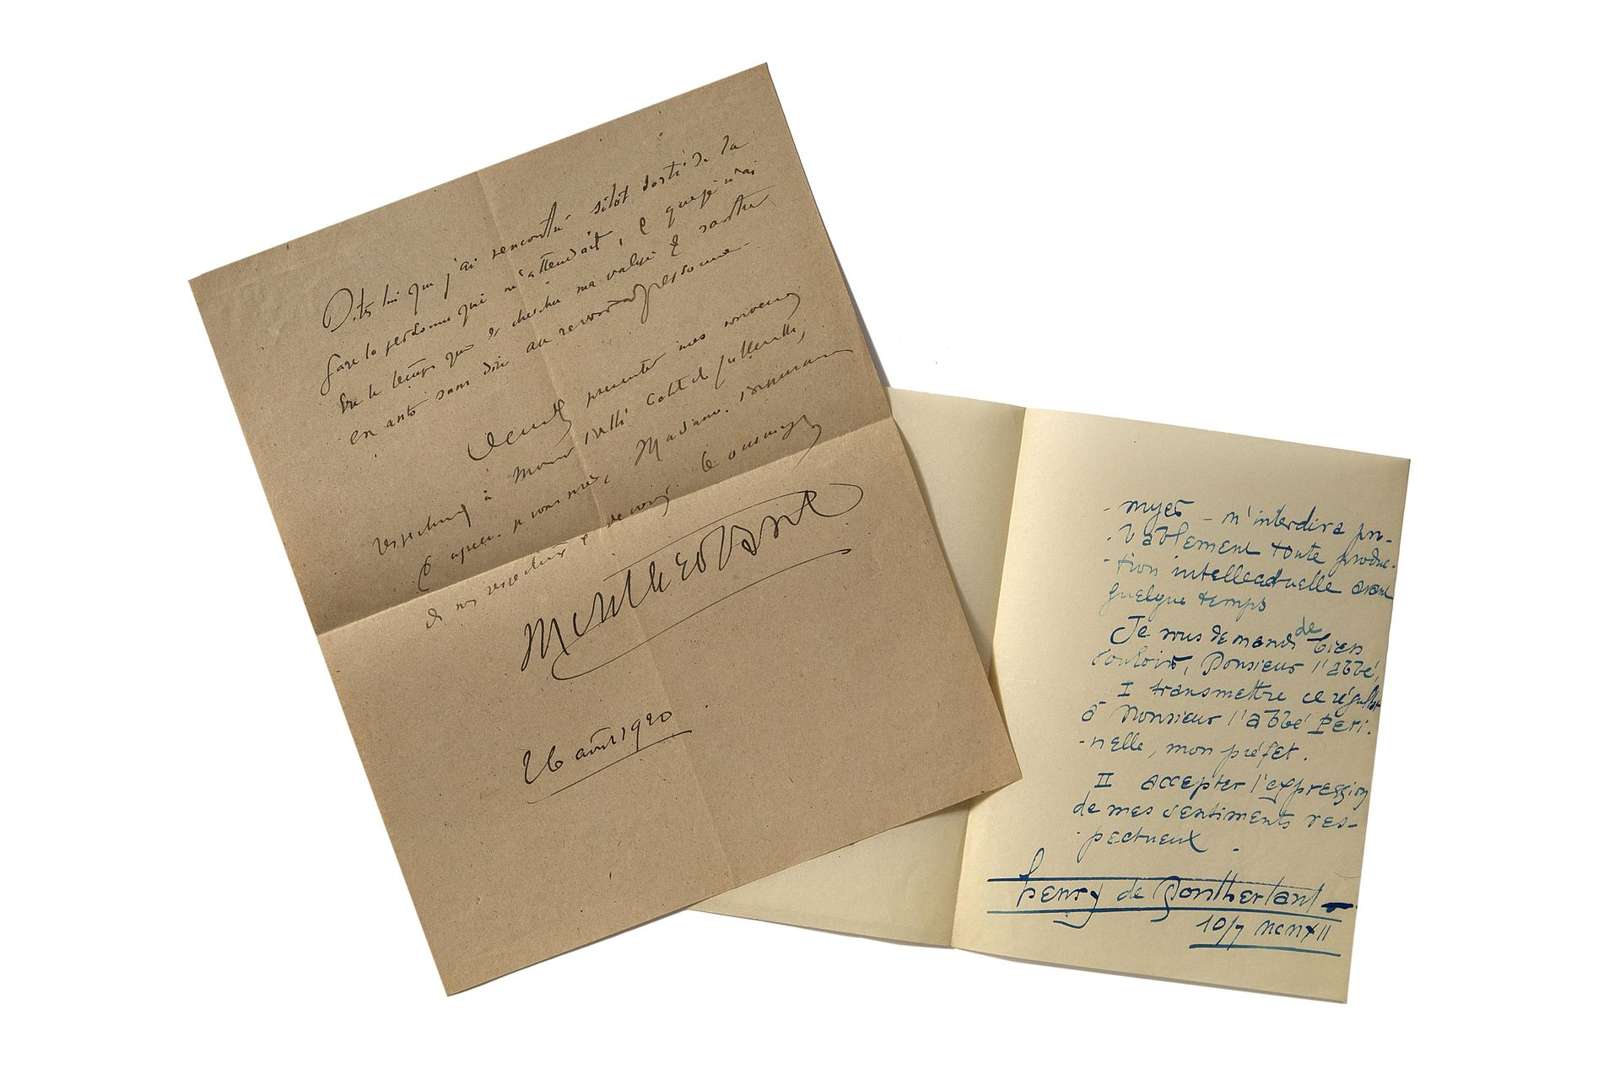 Dites lui que j'ai rencontré sitôt sorti de la
gare la personne qui m'attendait, & que je n'ai
eu le temps que de chercher ma valise & sauter
en auto sans dire au revoir à personne.
Veuillez présenter mes souvenirs
respectueux à Monsieur l'abbé
& agréer je vous prie, Madame, l'assurance
de mes respectueux &
Montherlant
26 août 1920
-myes - m'interdira pro-
-bablement toute produc-
-tion intellectuelle avant
quelque temps
Je vous demande de bien
vouloir, Monsieur l'abbé,
I transmettre ce résultat
à Monsieur l'abbé Peri-
-nelle, mon préfet.
II accepter l'expression
de mes sentiments res-
-pectueux.
Henry de Montherlant
10/7 MCMXII